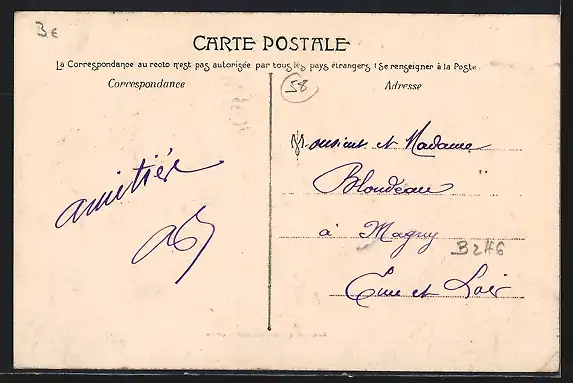 3€
CARTE POSTALE
La Correspondance au recto n'est pas autorisée par tous les pays étrangers (Se renseigner à la Poste.
Correspondance
58
Adresse
Monsieur et Madame
Blondeau
à Magny
B246
Eure et Loir
amitiés